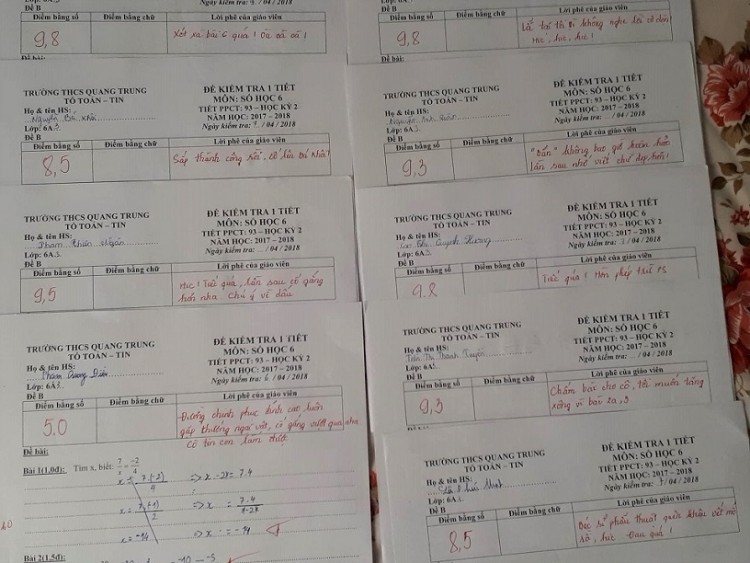 Đề B
Điểm bằng số Điểm bằng chữ Lời phê của giáo viên
9,8 Xót xa bài 6 quá!
Đề bài:
TRƯỜNG THCS QUANG TRUNG
TỔ TOÁN – TIN
ĐỀ KIỂM TRA 1 TIẾT
MÔN: SỐ HỌC 6
TIẾT PPCT: 93 – HỌC KỲ 2
NĂM HỌC: 2017 – 2018
Ngày kiểm tra: / 04 / 2018
Họ & tên HS:
Nguyễn Bá Khải
Lớp: 6A3
Đề B
Điểm bằng số Điểm bằng chữ Lời phê của giáo viên
8,5 Sắp thành công rồi, cố lên Bá Khải!
TRƯỜNG THCS QUANG TRUNG
TỔ TOÁN – TIN
ĐỀ KIỂM TRA 1 TIẾT
MÔN: SỐ HỌC 6
TIẾT PPCT: 93 – HỌC KỲ 2
NĂM HỌC: 2017 – 2018
Ngày kiểm tra: / 04 / 2018
Họ & tên HS:
Phạm Thiên Ngân
Lớp: 6A3
Đề B
Điểm bằng số Điểm bằng chữ Lời phê của giáo viên
9,5 Híc! Tiếc quá, lần sau cố gắng
hơn nha. Chú ý vi dấu
TRƯỜNG THCS QUANG TRUNG
TỔ TOÁN – TIN
ĐỀ KIỂM TRA 1 TIẾT
MÔN: SỐ HỌC 6
TIẾT PPCT: 93 – HỌC KỲ 2
NĂM HỌC: 2017 – 2018
Ngày kiểm tra: 6 / 04 / 2018
Họ & tên HS:
Phạm Dương
Lớp: 6A3
Đề B
Điểm bằng số Điểm bằng chữ Lời phê của giáo viên
5.0 -Đường chinh phục đỉnh cao luôn
gặp thường ngại vật, cố gắng vượt qua nha
cô tin con làm được
Đề bài:
Bài 1(1,0đ): Tìm x, biết: 7/x = -2/4
=> x · -2 = 7.4
=> x = 7.4
=> x = -14
x = -14
Bài 2(1,5đ)
Đề B
Điểm bằng số Điểm bằng chữ Lời phê của giáo viên
9,8
Đề bài:
TRƯỜNG THCS QUANG TRUNG
TỔ TOÁN – TIN
ĐỀ KIỂM TRA 1 TIẾT
MÔN: SỐ HỌC 6
TIẾT PPCT: 93 – HỌC KỲ 2
NĂM HỌC: 2017 – 2018
Ngày kiểm tra: / 04 / 2018
Họ & tên HS:
Nguyễn
Lớp: 6A3
Đề B
Điểm bằng số Điểm bằng chữ Lời phê của giáo viên
9,3 "Bẩn" không
lần sau nhớ viết chữ đẹp hơn!
TRƯỜNG THCS QUANG TRUNG
TỔ TOÁN – TIN
ĐỀ KIỂM TRA 1 TIẾT
MÔN: SỐ HỌC 6
TIẾT PPCT: 93 – HỌC KỲ 2
NĂM HỌC: 2017 – 2018
Ngày kiểm tra: / 04 / 2018
Họ & tên HS:
Quỳnh Hương
Lớp: 6A3
Đề B
Điểm bằng số Điểm bằng chữ Lời phê của giáo viên
9.8 Tiếc quá! Hỗn phép trừ PS
TRƯỜNG THCS QUANG TRUNG
TỔ TOÁN – TIN
ĐỀ KIỂM TRA 1 TIẾT
MÔN: SỐ HỌC 6
TIẾT PPCT: 93 – HỌC KỲ 2
NĂM HỌC: 2017 – 2018
Ngày kiểm tra: / 04 / 2018
Họ & tên HS:
Trần Thị Thanh Tuyền
Lớp: 6A3
Đề B
Điểm bằng số Điểm bằng chữ Lời phê của giáo viên
9,3 Chấm bài cho cô, tôi muốn tăng
xông vì bài 2a,3
TRƯỜNG THCS QUANG TRUNG
TỔ TOÁN – TIN
ĐỀ KIỂM TRA 1 TIẾT
MÔN: SỐ HỌC 6
TIẾT PPCT: 93 – HỌC KỲ 2
NĂM HỌC: 2017 – 2018
Ngày kiểm tra: / 04 / 2018
Họ & tên HS:
Lớp: 6A
Đề B
Điểm bằng số Điểm bằng chữ Lời phê của giáo viên
8,5 Bác sĩ phẫu thuật quên khâu vết mổ
Đau quá!